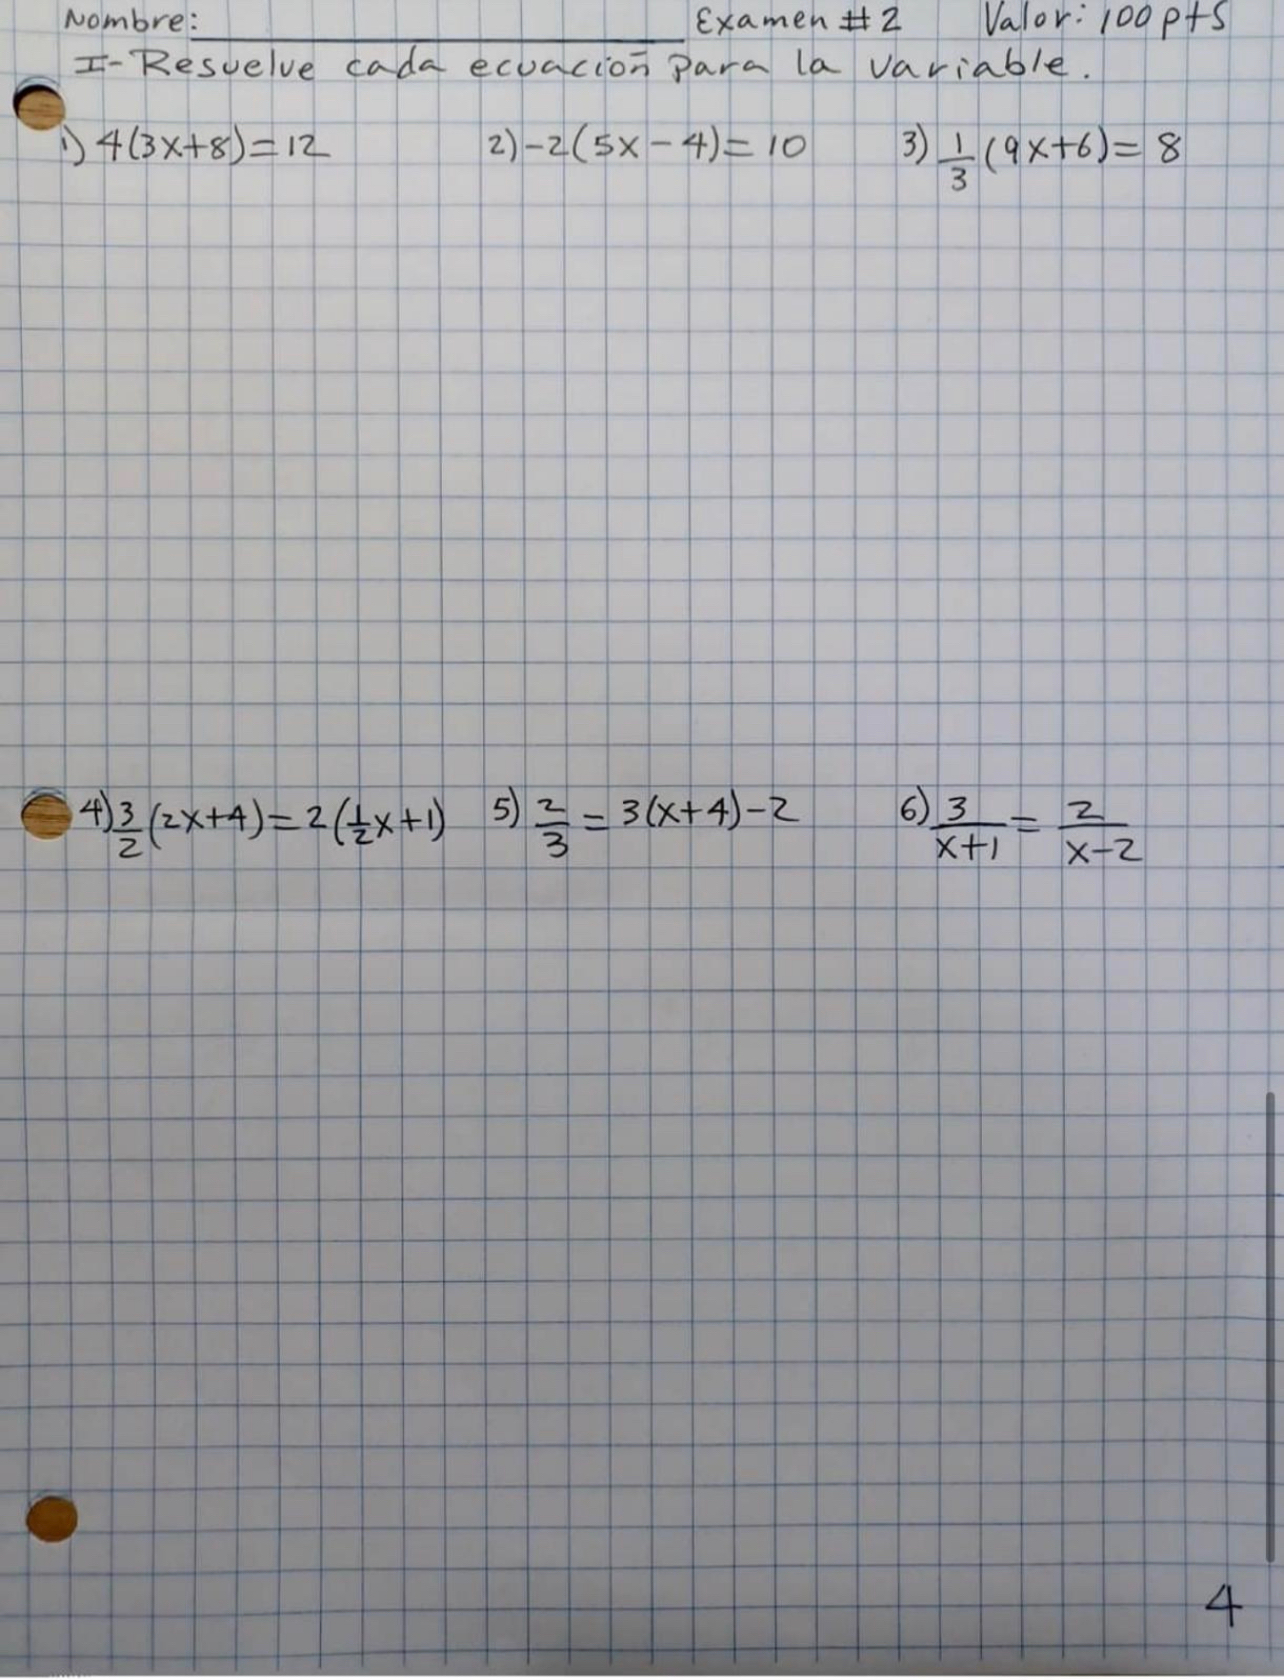 Nombre: Examen # 2 Valor: 100 pts
I- Resuelve cada ecuación para la variable.
1) 4(3x+8)=12 2) -2(5x-4)=10 3) 1/3 (9x+6)=8
4) 3/2 (2x+4)=2(1/2 x+1) 5) 2/3 = 3(x+4)-2 6) 3/(x+1) = 2/(x-2)
4